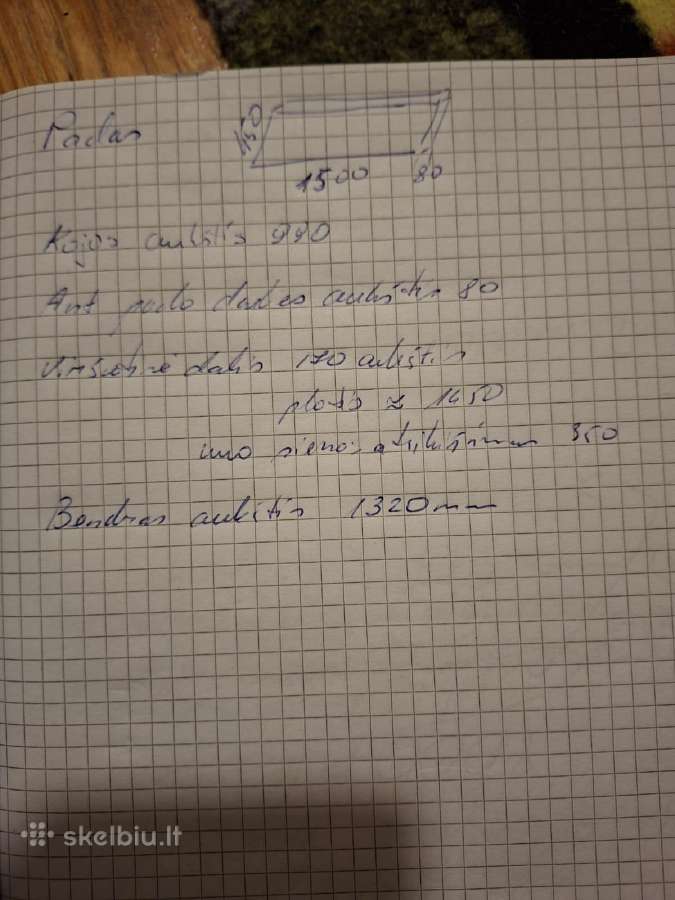 Padas
450
1500 80
Kojos aukštis 990
Ant pado dalies aukštis 80
Viršutinė dalis 170 aukštis
plotis 1450
nuo sienos atsikišimas 350
Bendras aukštis 1320mm
skelbiu.lt